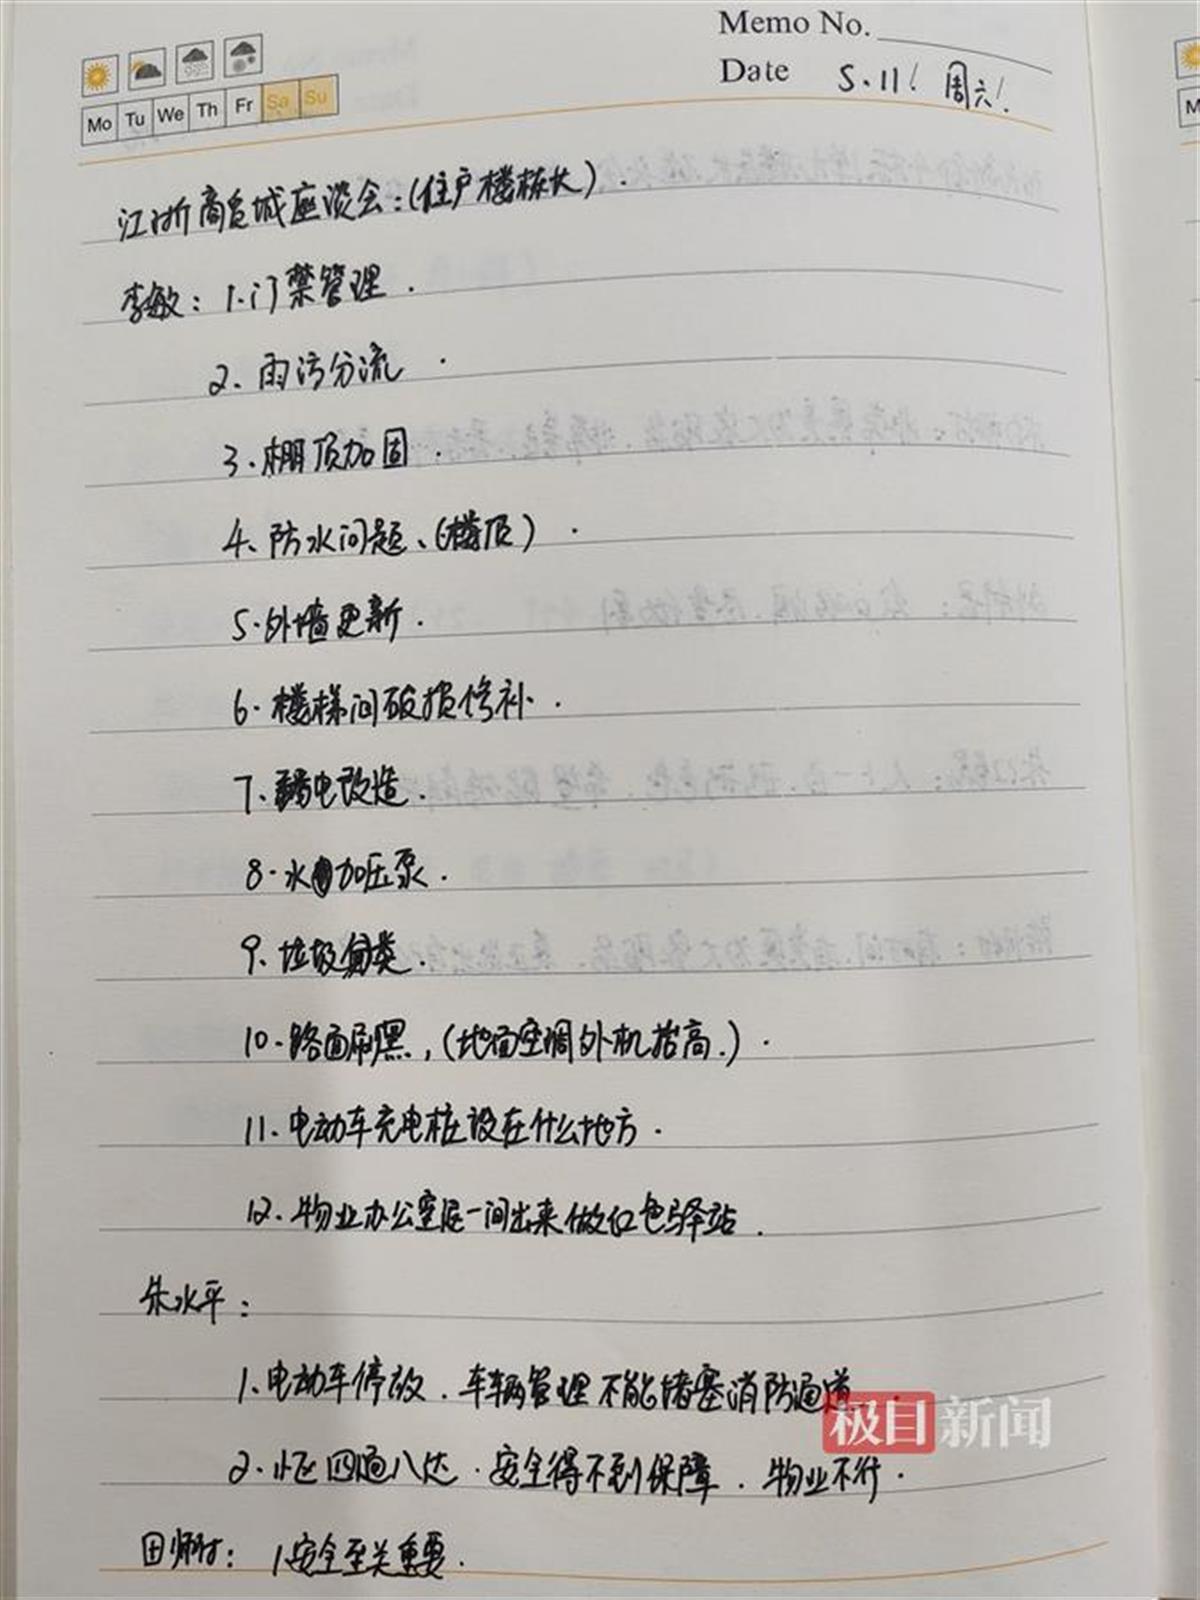 Memo No.
Date 5.11! 周六!
Mo Tu We Th Fr Sa Su
江浙商贸城座谈会:(住户楼栋长).
李敏: 1.门禁管理.
2. 雨污分流.
3. 棚顶加固.
4、防水问题、(楼顶).
5. 外墙更新.
6. 楼梯间破损修补.
7、弱电改造.
8. 水加压泵.
9、垃圾分类.
10. 路面刷黑,(地面空调外机抬高.).
11. 电动车充电桩设在什么地方.
12. 物业办公室后一间出来做红色驿站.
朱水平:
1.电动车停放.车辆管理不能堵塞消防通道.
2. 小区四通八达.安全得不到保障.物业不行.
田师付: 1.安全至关重要.
极目新闻
M